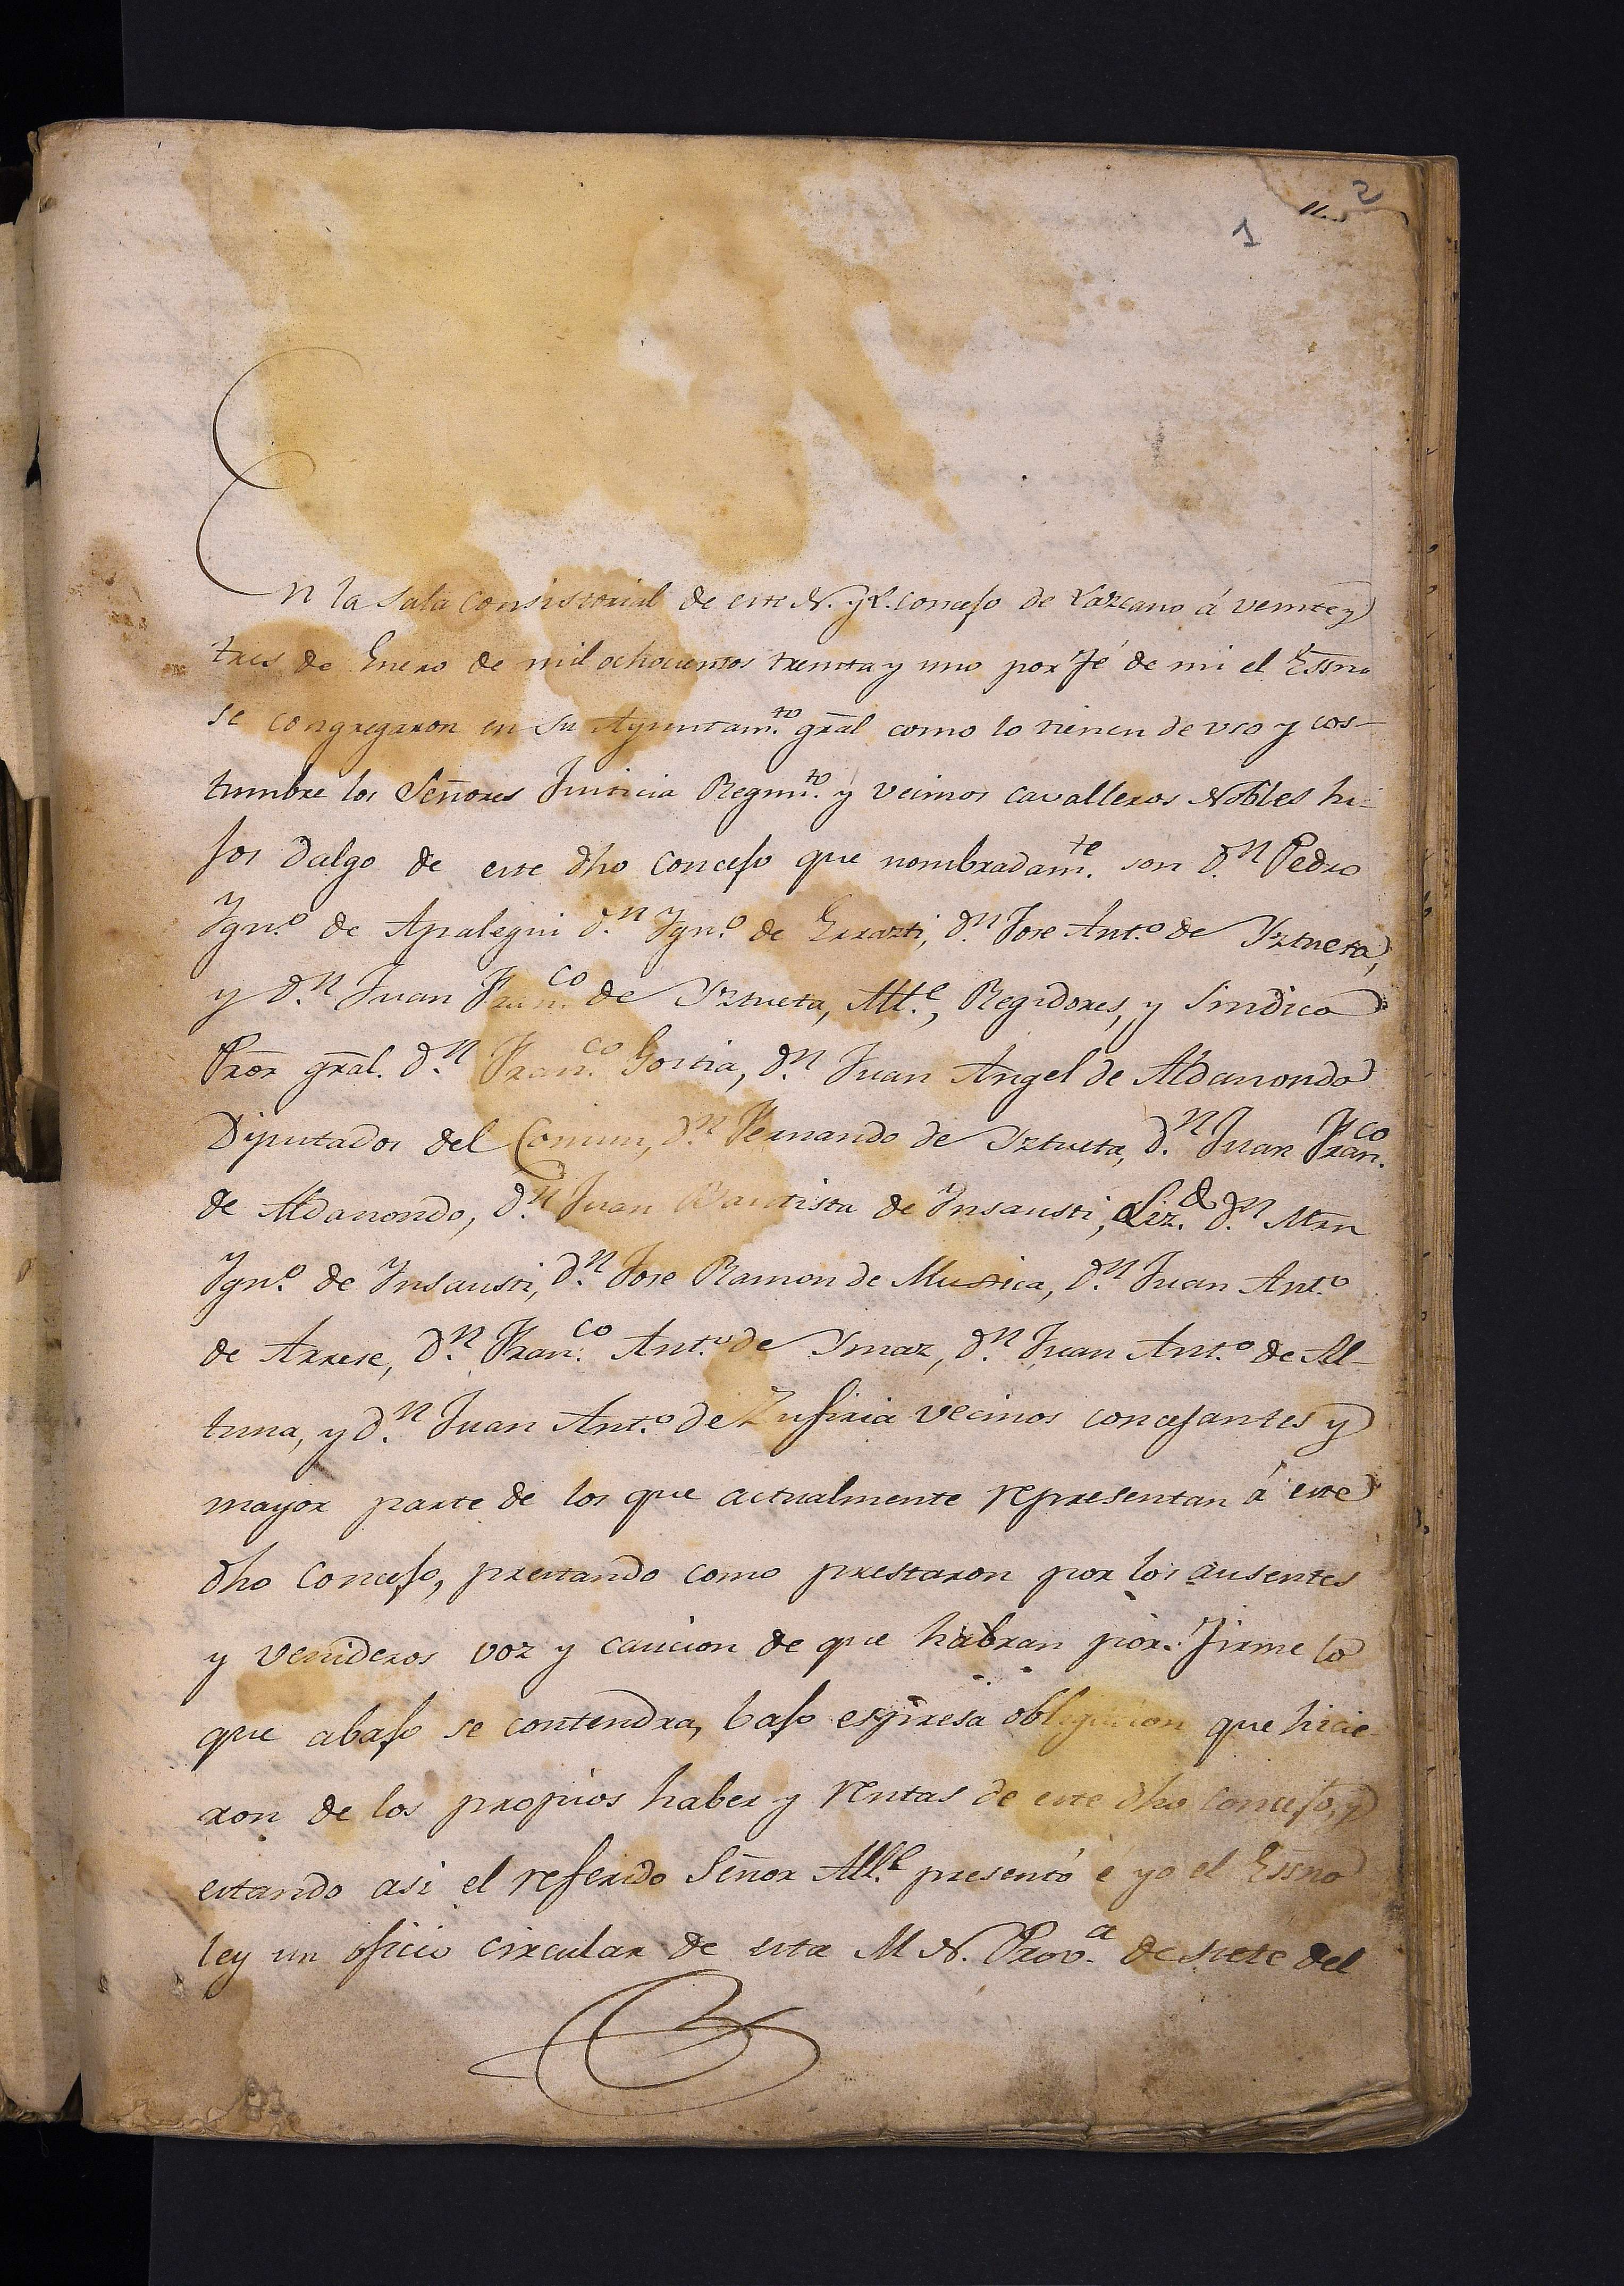 2
1
En la Sala Consistorial de este N. y L. concejo de Lazcano á veinte y
tres de Enero de mil ochocientos treinta y uno por fé de mi el Essno
se congregaron en su Ayuntam.to gral como lo tienen de uso y cos-
tumbre los Señores Justicia Regim.to y vecinos cavalleros Nobles hi-
jos dalgo de este dho Concejo que nombradam.te son D.n Pedro
Ygn.o de Apalegui D.n Ygn.o de Errazti, D.n Jose Ant.o de Yztueta,
y D.n Juan Fran.co de Yztueta, All.e, Regidores, y Sindico
Pror gral. D.n Fran.co Goitia, D.n Juan Angel de Aldanondo
Diputados del Comun, D.n Fernando de Yztueta, D.n Juan Fran.co
de Aldanondo, D.n Juan Bautista de Ynsausti, Liz.do D.n Mrn
Ygn.o de Ynsausti, D.n Jose Ramon de Mugica, D.n Juan Ant.o
de Arrese, D.n Fran.co Ant.o de Ymaz, D.n Juan Ant.o de Al-
tuna, y D.n Juan Ant.o de Zufiria vecinos concejantes y
mayor parte de los que actualmente representan á este
dho Concejo, prestando como prestaron por los ausentes
y venideros voz y caucion de que habran por firme lo
que abajo se contendra, bajo espresa obligacion que hicie-
ron de los propios haber y rentas de este dho concejo, y
estando asi el referido Señor All.e presentó é yo el Essno
ley un oficio circular de esta M N. Prov.a de siete del